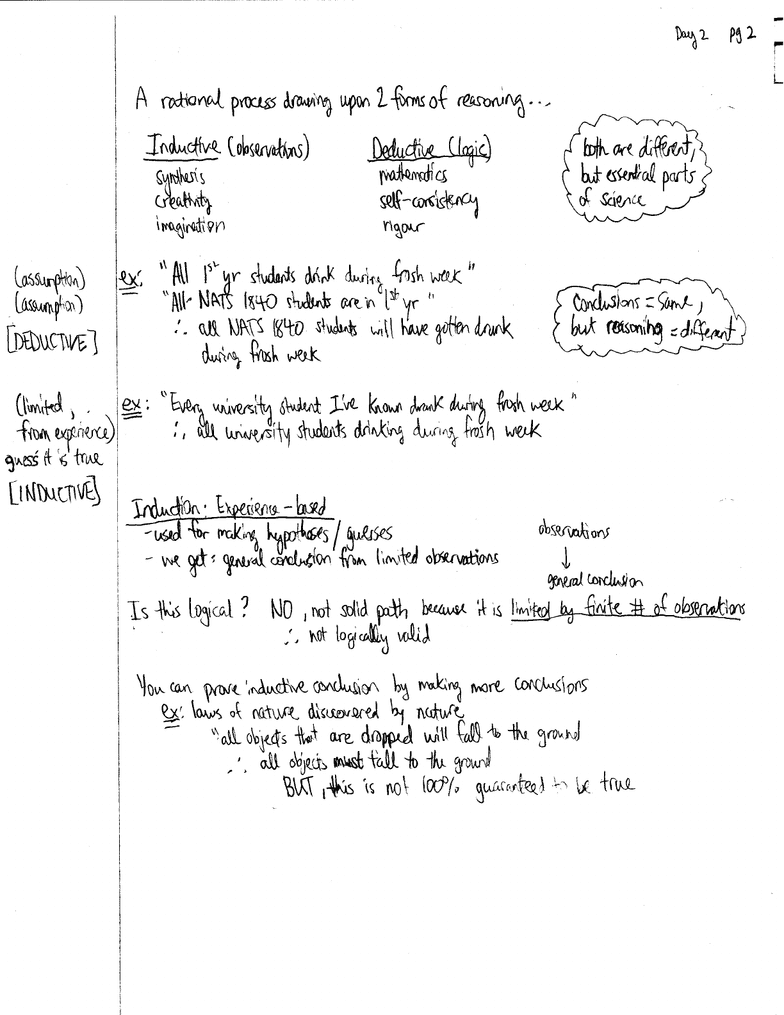 Day 2 pg 2
A rational process drawing upon 2 forms of reasoning...
Inductive (observations)
synthesis
creativity
imagination
Deductive (logic)
mathematics
self-consistency
rigour
both are different,
but essential parts
of science
(assumption)
(assumption)
[DEDUCTIVE]
ex: "All 1st yr students drink during frosh week"
"All NATS 1840 students are in 1st yr"
∴ all NATS 1840 students will have gotten drunk
during frosh week
conclusions = same,
but reasoning = different
(limited,
from experience)
guess it is true
[INDUCTIVE]
ex: "Every university student I've known drank during frosh week"
∴ all university students drinking during frosh week
Induction: Experience-based
- used for making hypotheses / guesses
- we get: general conclusion from limited observations
observations
↓
general conclusion
Is this logical? NO, not solid path because it is limited by finite # of observations
∴ not logically valid
You can prove inductive conclusion by making more conclusions
ex: laws of nature discovered by nature
"all objects that are dropped will fall to the ground
∴ all objects must fall to the ground
BUT, this is not 100% guaranteed to be true